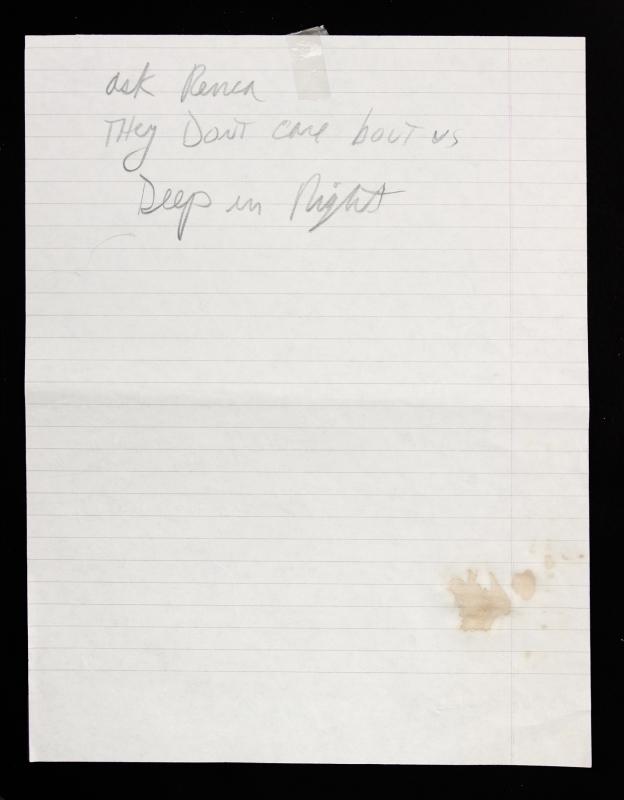 ask Renea
THey Don't care bout us
Deep in Night